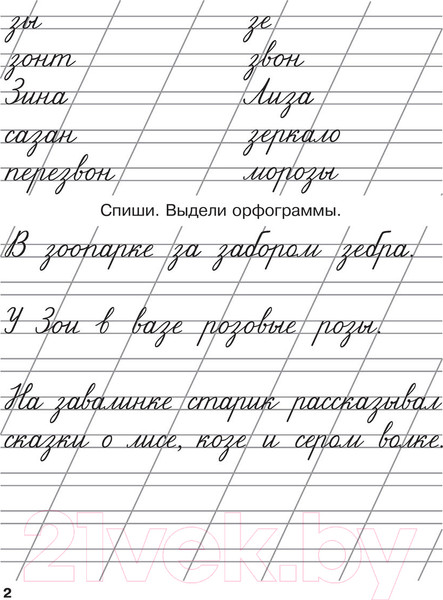 зы зе
зонт звон
Зина Лиза
сазан зеркало
перезвон морозы
Спиши. Выдели орфограммы.
В зоопарке за забором зебра.
У Зои в вазе розовые розы.
На завалинке старик рассказывал
сказки о лисе, козе и сером волке.
21vek.by
2